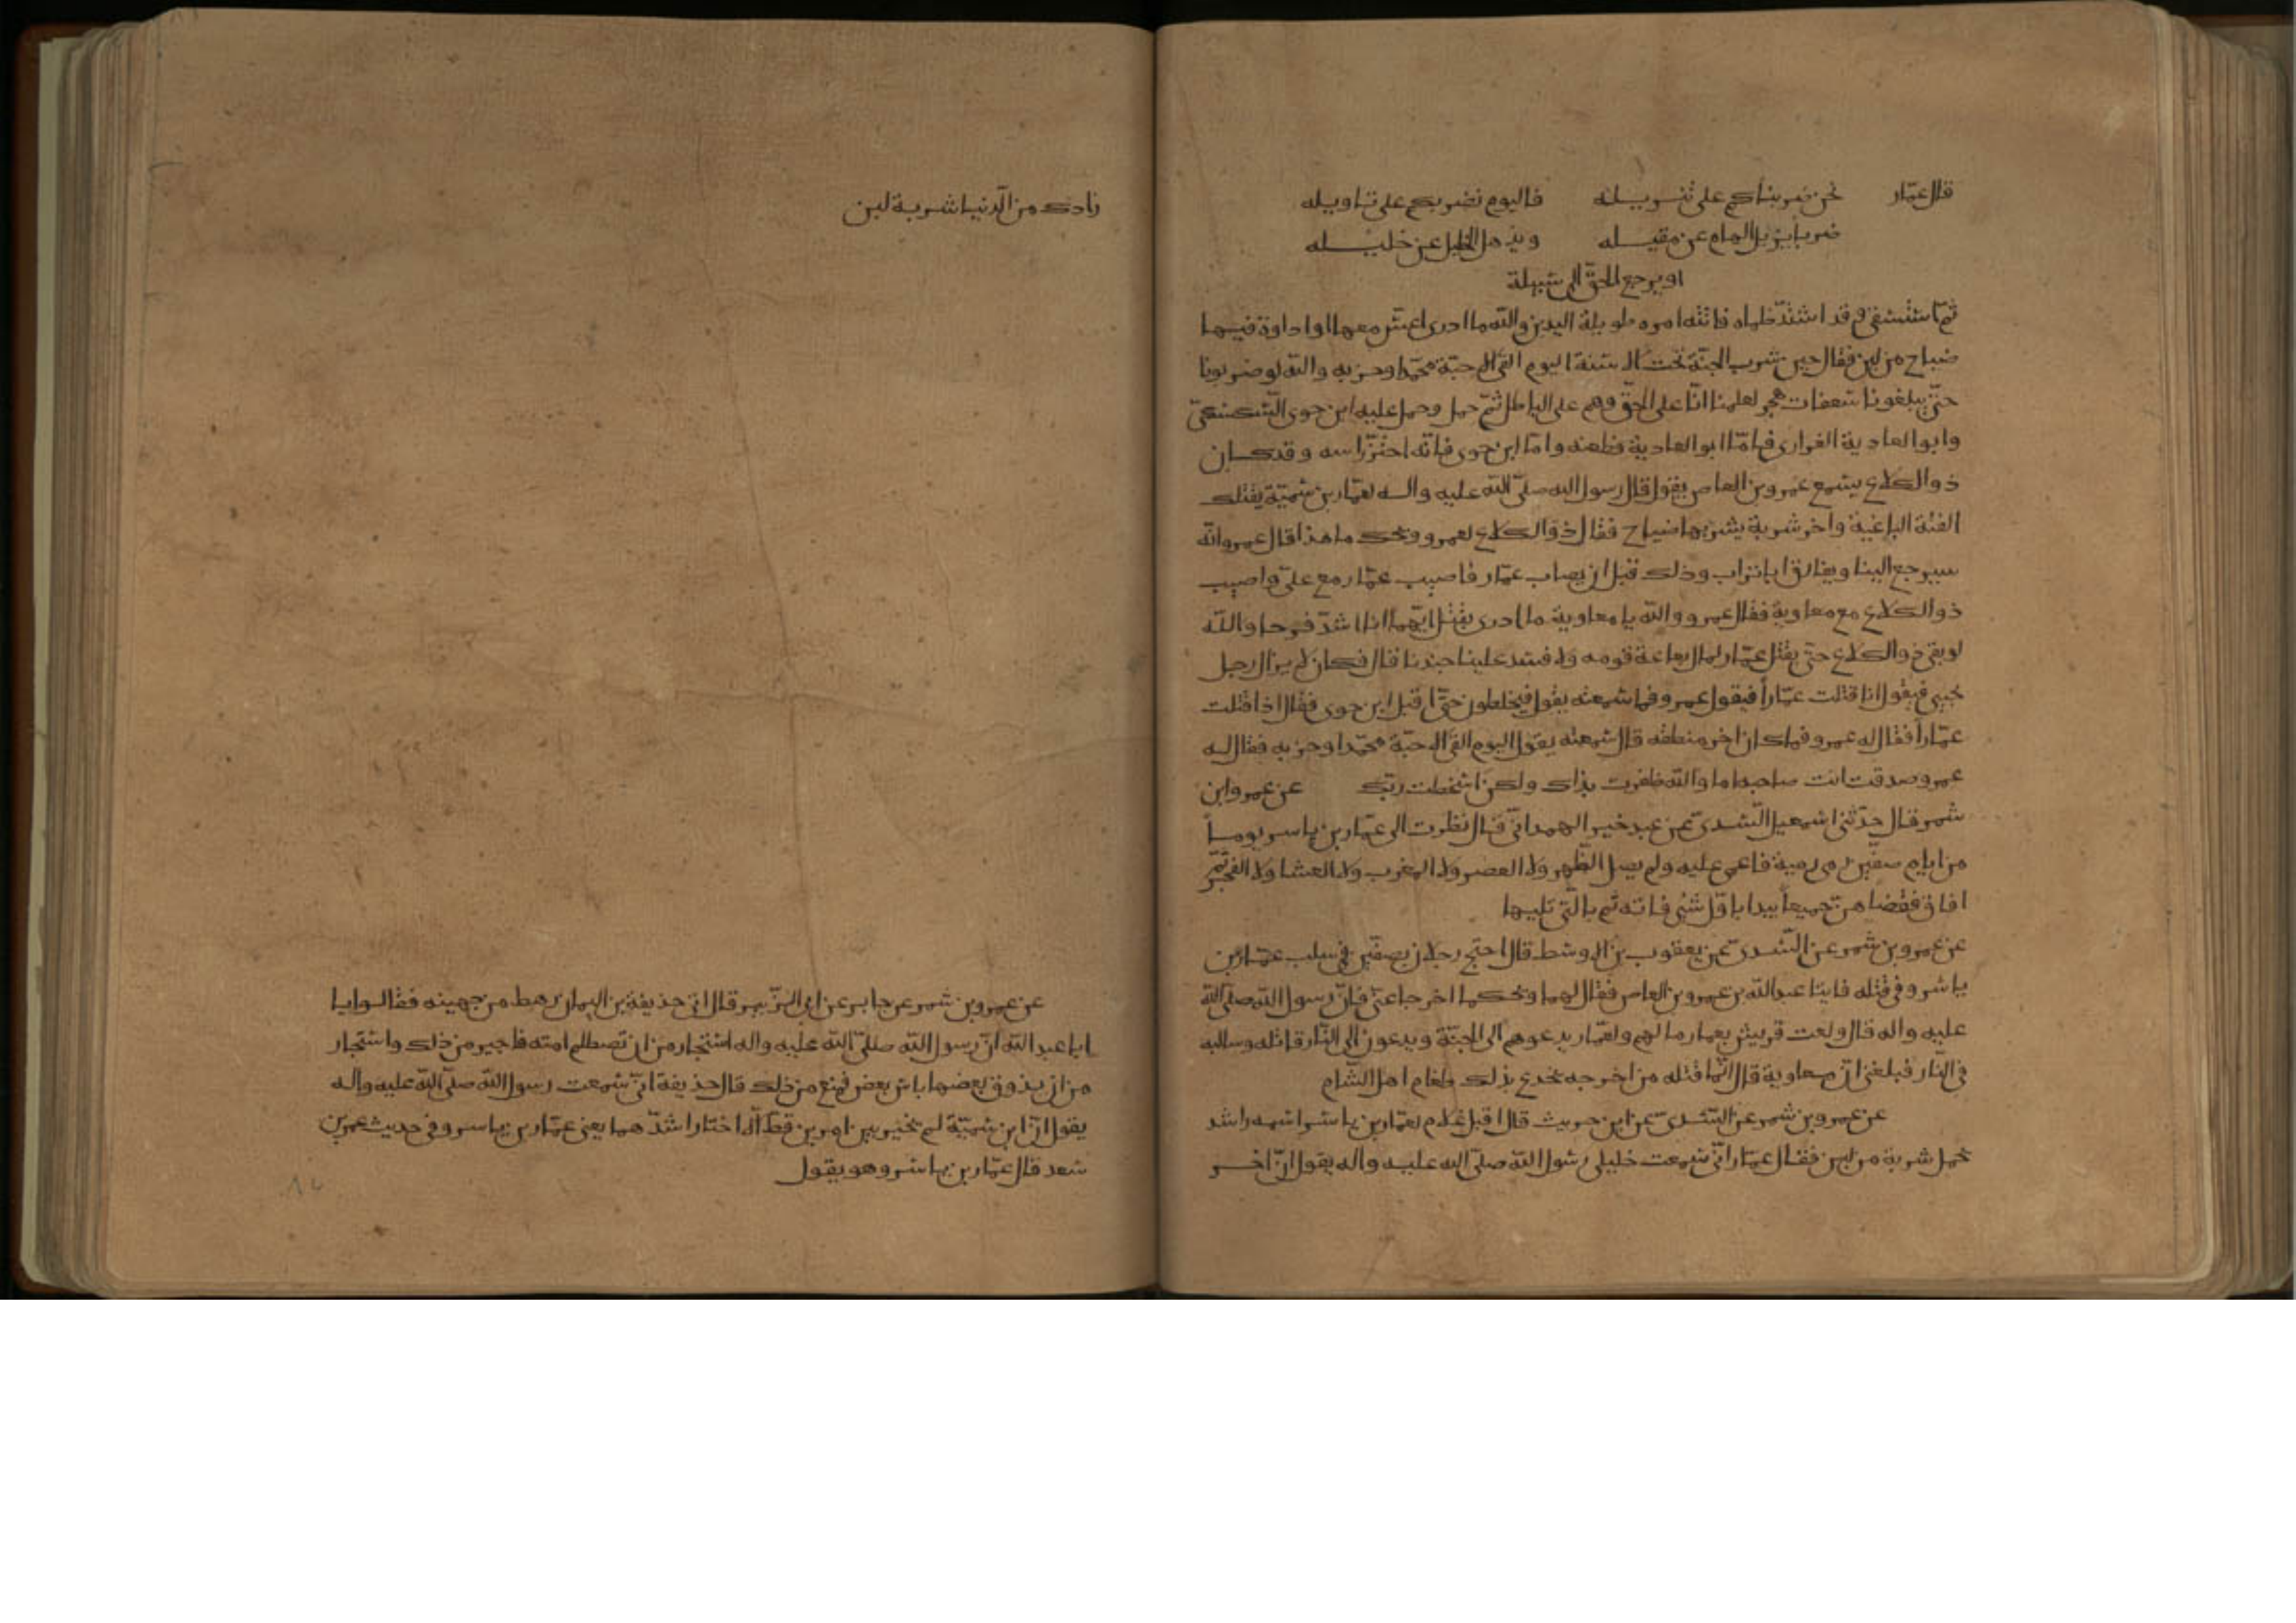 قال عمّار نحن ضربناكم على تنزيله فاليوم نضربكم على تاويله
ضربا يزيل الهام عن مقيله ويذهل الخليل عن خليله
او يرجع الحقّ الى سبيله
ثمّ استسقى وقد اشتدّ ظماه فاتته امره طويلة اليدين والله ما ادرى اعسّ معها او اداوة فيها
ضياح من لبن فقال حين شرب الجنّة تحت الاسنة اليوم القى الاحبّة محمّدا وحزبه والله لو ضربونا
حتّى يبلغونا سعفات هجر لعلمنا انّا على الحقّ وهم على الباطل ثمّ حمل وحمل عليه ابن جوى السكسكىّ
وابو العادية الفزارى فامّا ابو العادية فطعنه وامّا ابن جوى فانّه احتزّ راسه وقد كان
ذو الكلاع يسمع عمرو بن العاص يقول قال رسول الله صلّى الله عليه واله لعمّار بن سميّة يقتلك
الفئة الباغية واخر شربة يشربها ضياح فقال ذو الكلاع لعمرو ويحك ما هذا قال عمرو انّه
سيرجع الينا ويفارق ابا تراب وذلك قبل ان يصاب عمّار فاصيب عمّار مع علىّ واصيب
ذو الكلاع مع معاوية فقال عمرو والله يا معاوية ما ادرى بقتل ايّهما انا اشدّ فرحا والله
لو بقى ذو الكلاع حتّى يقتل عمّار لمال بعامة قومه ولافسد علينا جندنا قال فكان لا يزال رجل
يجيى فيقول انا قتلت عمّاراً فيقول عمرو فما سمعته يقول فيخلطون حتّى اقبل ابن جوى فقال انا قتلت
عمّاراً فقال له عمرو فما كان اخر منطقه قال سمعته يقول اليوم القى الاحبّة محمّدا وحزبه فقال له
عمرو صدقت انت صاحبه اما والله ما ظفرت يداك ولكن اسخطت ربّك عن عمرو ابن
شمر قال حدّثنى اسمعيل السّدىّ عن عبد خير الهمدانىّ قال نظرت الى عمّار بن ياسر يوماً
من ايام صفّين رمى رمية فاغمى عليه ولم يصل الظّهر ولا العصر ولا المغرب ولا العشا ولا الفجر ثمّ
افاق فقضاهن جميعاً يبدا باوّل شئى فاته ثم بالّتى تليها
عن عمرو بن شمر عن السّدىّ عن يعقوب بن الاوسط قال احتج رجلان بصفّين فى سلب عمّار بن
ياسر وفى قتله فاتيا عبد الله بن عمرو بن العاص فقال لهما ويحكما اخرجا عنّى فانّ رسول الله صلّى الله
عليه واله قال ولعت قريش بعمار ما لهم ولعمّار يدعوهم الى الجنّة ويدعون الى النّار قاتله وسالبه
فى النّار فبلغنى انّ معاوية قال انّما قتله من اخرجه يخدع بذلك طغام اهل الشّام
عن عمرو بن شمر عن السّدىّ عن ابن حريث قال اقبل غلام لعمّار بن ياسر اسمه راشد
يحمل شربة من لبن فقال عمّار انّى سمعت خليلى رسول الله صلّى الله عليه واله يقول انّ اخر
زادك من الدّنيا شربة لبن
عن عمرو بن شمر عن جابر عن ابى الزّبير قال اتى حذيفة بن اليمان رهط من جهينه فقالوا يا
ابا عبد الله انّ رسول الله صلّى الله عليه واله استجار من ان تصطلم امته فاجير من ذلك واستجار
من ان يذوق بعضها باس بعض فمنع من ذلك قال حذيفة انّى سمعت رسول الله صلّى الله عليه واله
يقول انّ ابن سميّة لم يخير بين امرين قطّ الّا اختار اشدّهما يعنى عمّار بن ياسر وفى حديث عمر بن
سعد قال عمّار بن ياسر وهو يقول